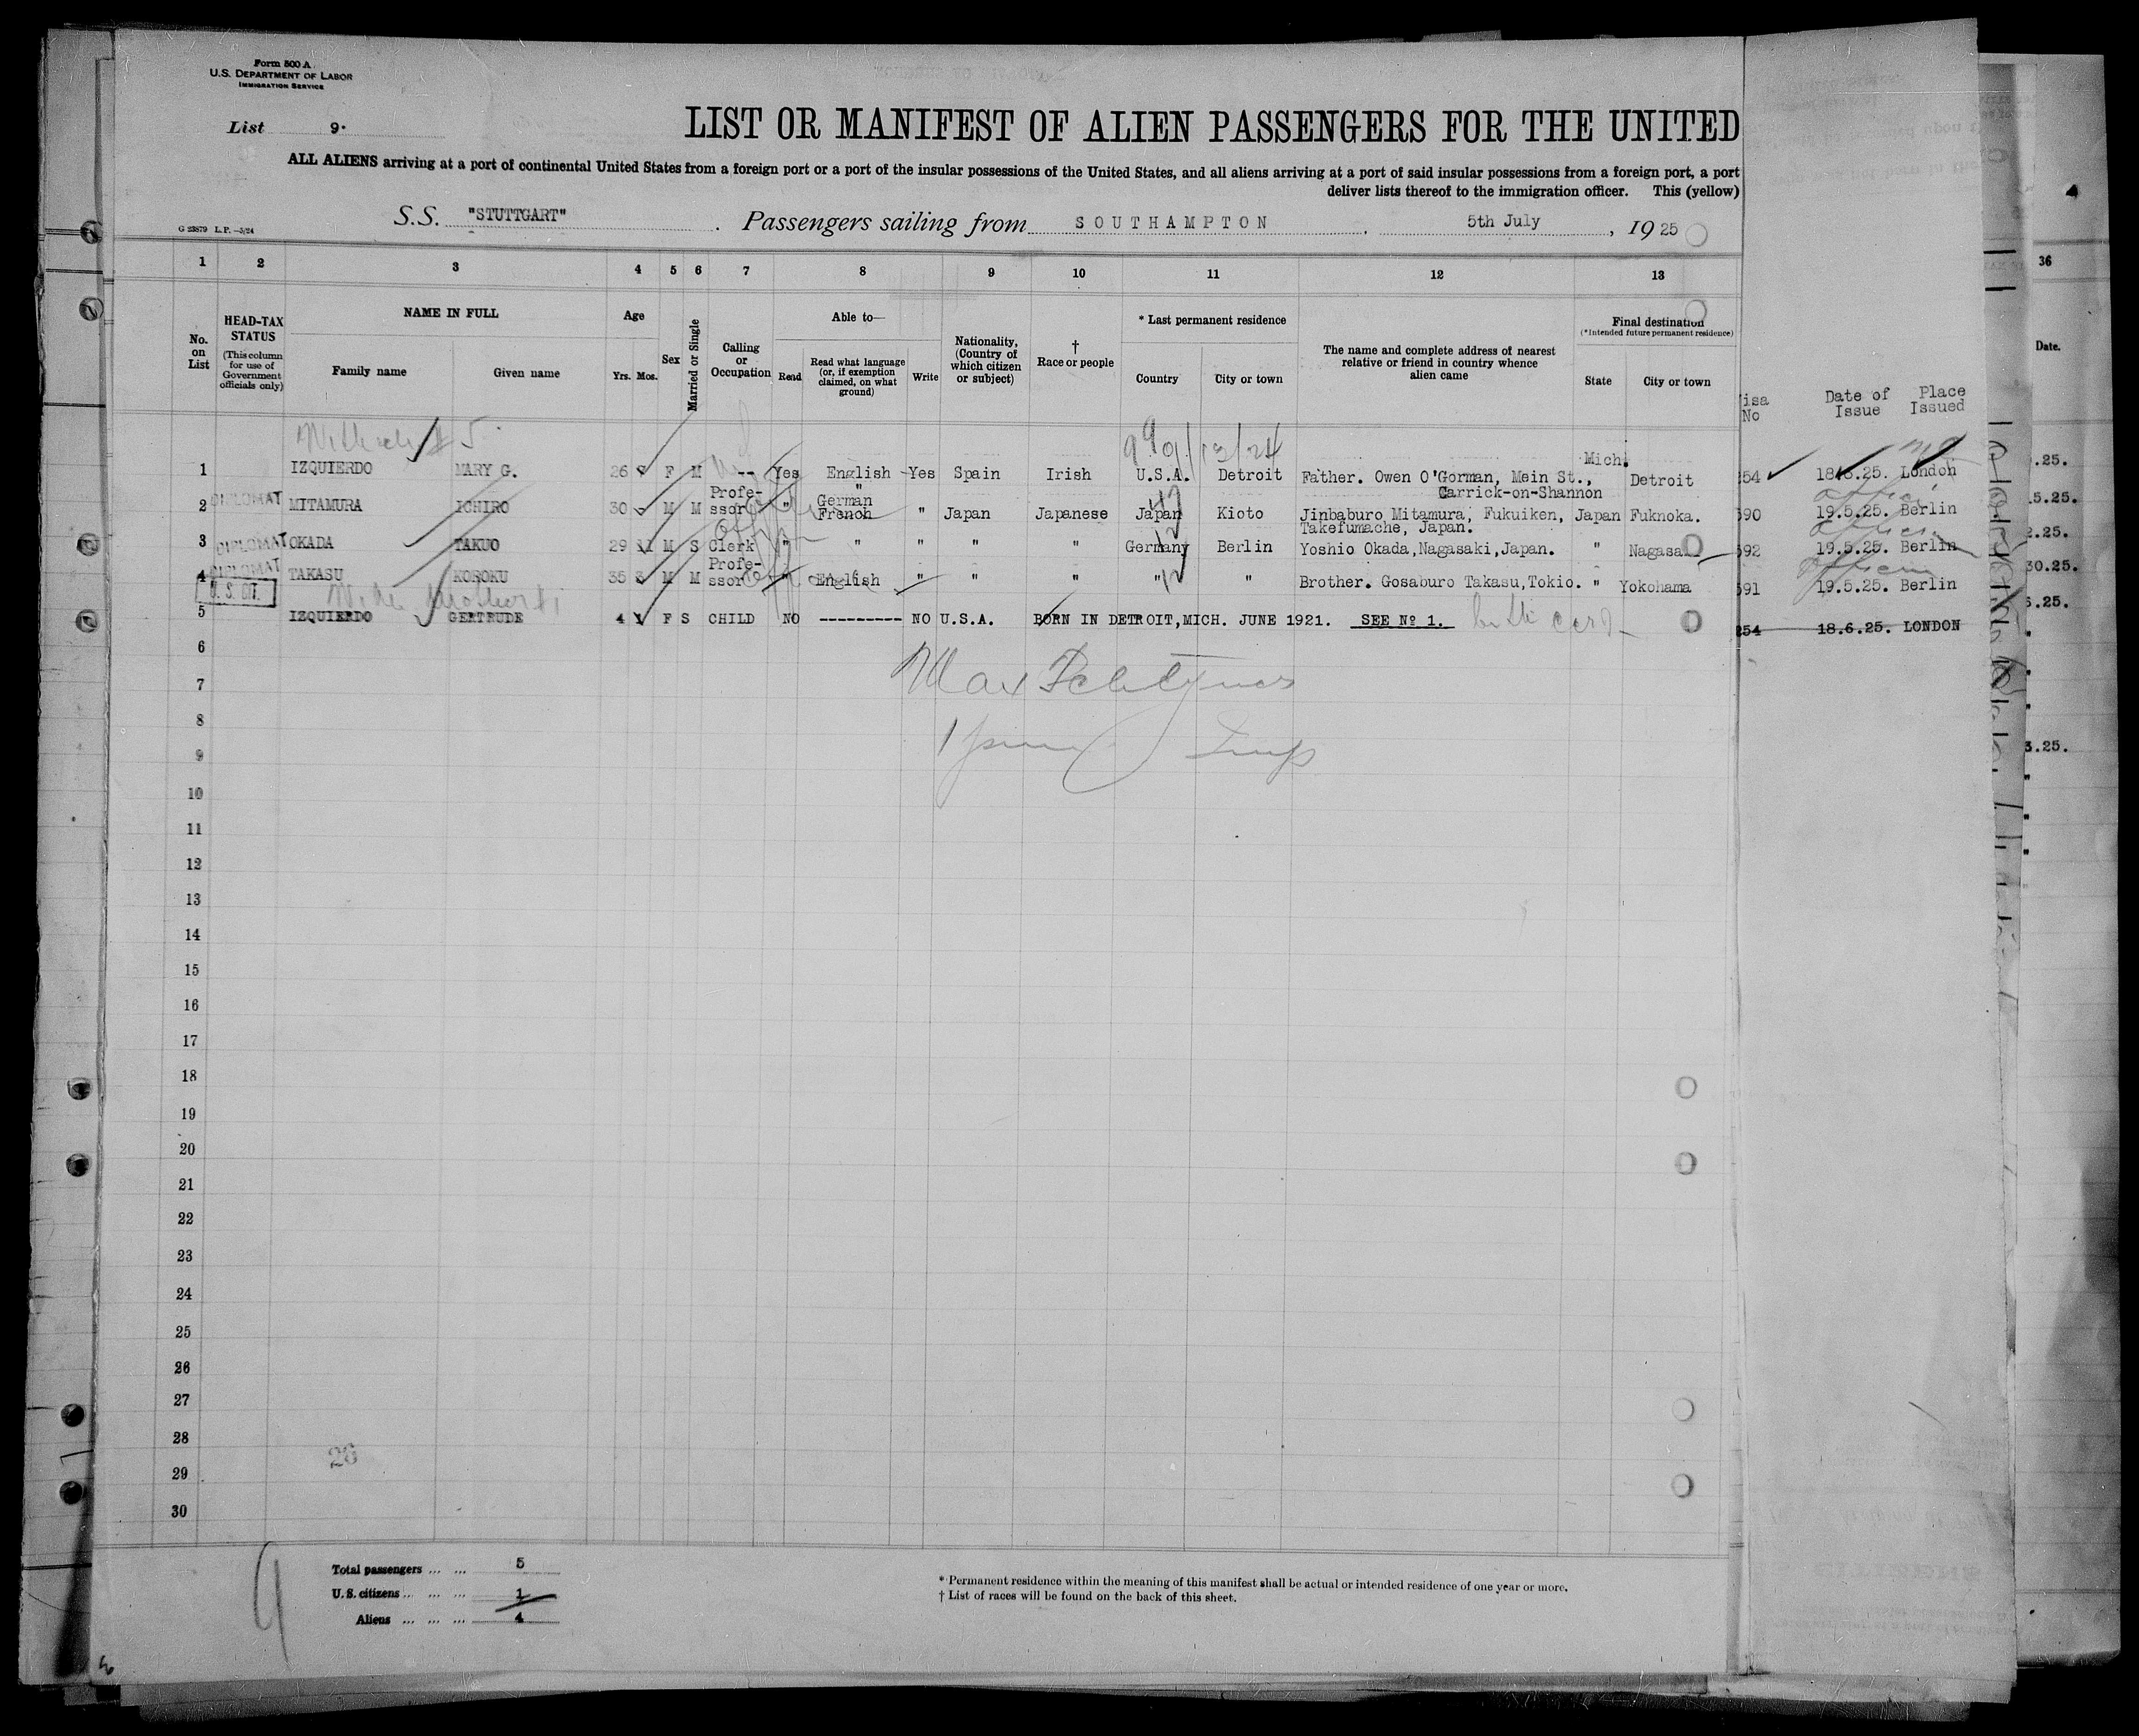 Form 500 A
U.S. DEPARTMENT OF LABOR
IMMIGRATION SERVICE
List 9.
LIST OR MANIFEST OF ALIEN PASSENGERS FOR THE UNITED
ALL ALIENS arriving at a port of continental United States from a foreign port or a port of the insular possessions of the United States, and all aliens arriving at a port of said insular possessions from a foreign port, a port
deliver lists thereof to the immigration officer. This (yellow)
G 23879 L.P.—5/24
S.S. "STUTTGART" . Passengers sailing from SOUTHAMPTON , 5th July , 1925
1 2 3 4 5 6 7 8 9 10 11 12 13 36
No. on List
HEAD-TAX STATUS
(This column for use of Government officials only)
NAME IN FULL
Family name Given name
Age
Yrs. Mos.
Sex
Married or Single
Calling or Occupation
Able to—
Read
Read what language (or, if exemption claimed, on what ground)
Write
Nationality, (Country of which citizen or subject)
† Race or people
* Last permanent residence
Country City or town
The name and complete address of nearest relative or friend in country whence alien came
Final destination
(*Intended future permanent residence)
State City or town
isa No Date of Issue Place Issued
Date.
1 IZQUIERDO MARY G. 26 F M -- Yes English Yes Spain Irish U.S.A. Detroit Father. Owen O'Gorman, Mein St., Carrick-on-Shannon Mich. Detroit 254 18.6.25. London
2 DIPLOMAT MITAMURA ICHIRO 30 M M Profe-ssor " " German French " Japan Japanese Japan Kioto Jinbaburo Mitamura, Fukuiken, Takefumache, Japan. Japan Fuknoka. 590 19.5.25. Berlin
3 DIPLOMAT OKADA TAKUO 29 11 M S Clerk " " " " " Germany Berlin Yoshio Okada,Nagasaki,Japan. " Nagasa 592 19.5.25. Berlin
4 DIPLOMAT TAKASU KOROKU 35 M M Profe-ssor " English " " " " " Brother. Gosaburo Takasu,Tokio. " Yokohama 591 19.5.25. Berlin
U. S. CIT.
5 IZQUIERDO GERTRUDE 4 1 F S CHILD NO --------- NO U.S.A. BORN IN DETROIT,MICH. JUNE 1921. SEE Nº 1. 254 18.6.25. LONDON
6
7
8
9
10
11
12
13
14
15
16
17
18
19
20
21
22
23
24
25
26
27
28
29
30
26
9
Total passengers ... ... 5
U.S. citizens ... ... ... 1
Aliens ... ... ... 4
* Permanent residence within the meaning of this manifest shall be actual or intended residence of one year or more.
† List of races will be found on the back of this sheet.